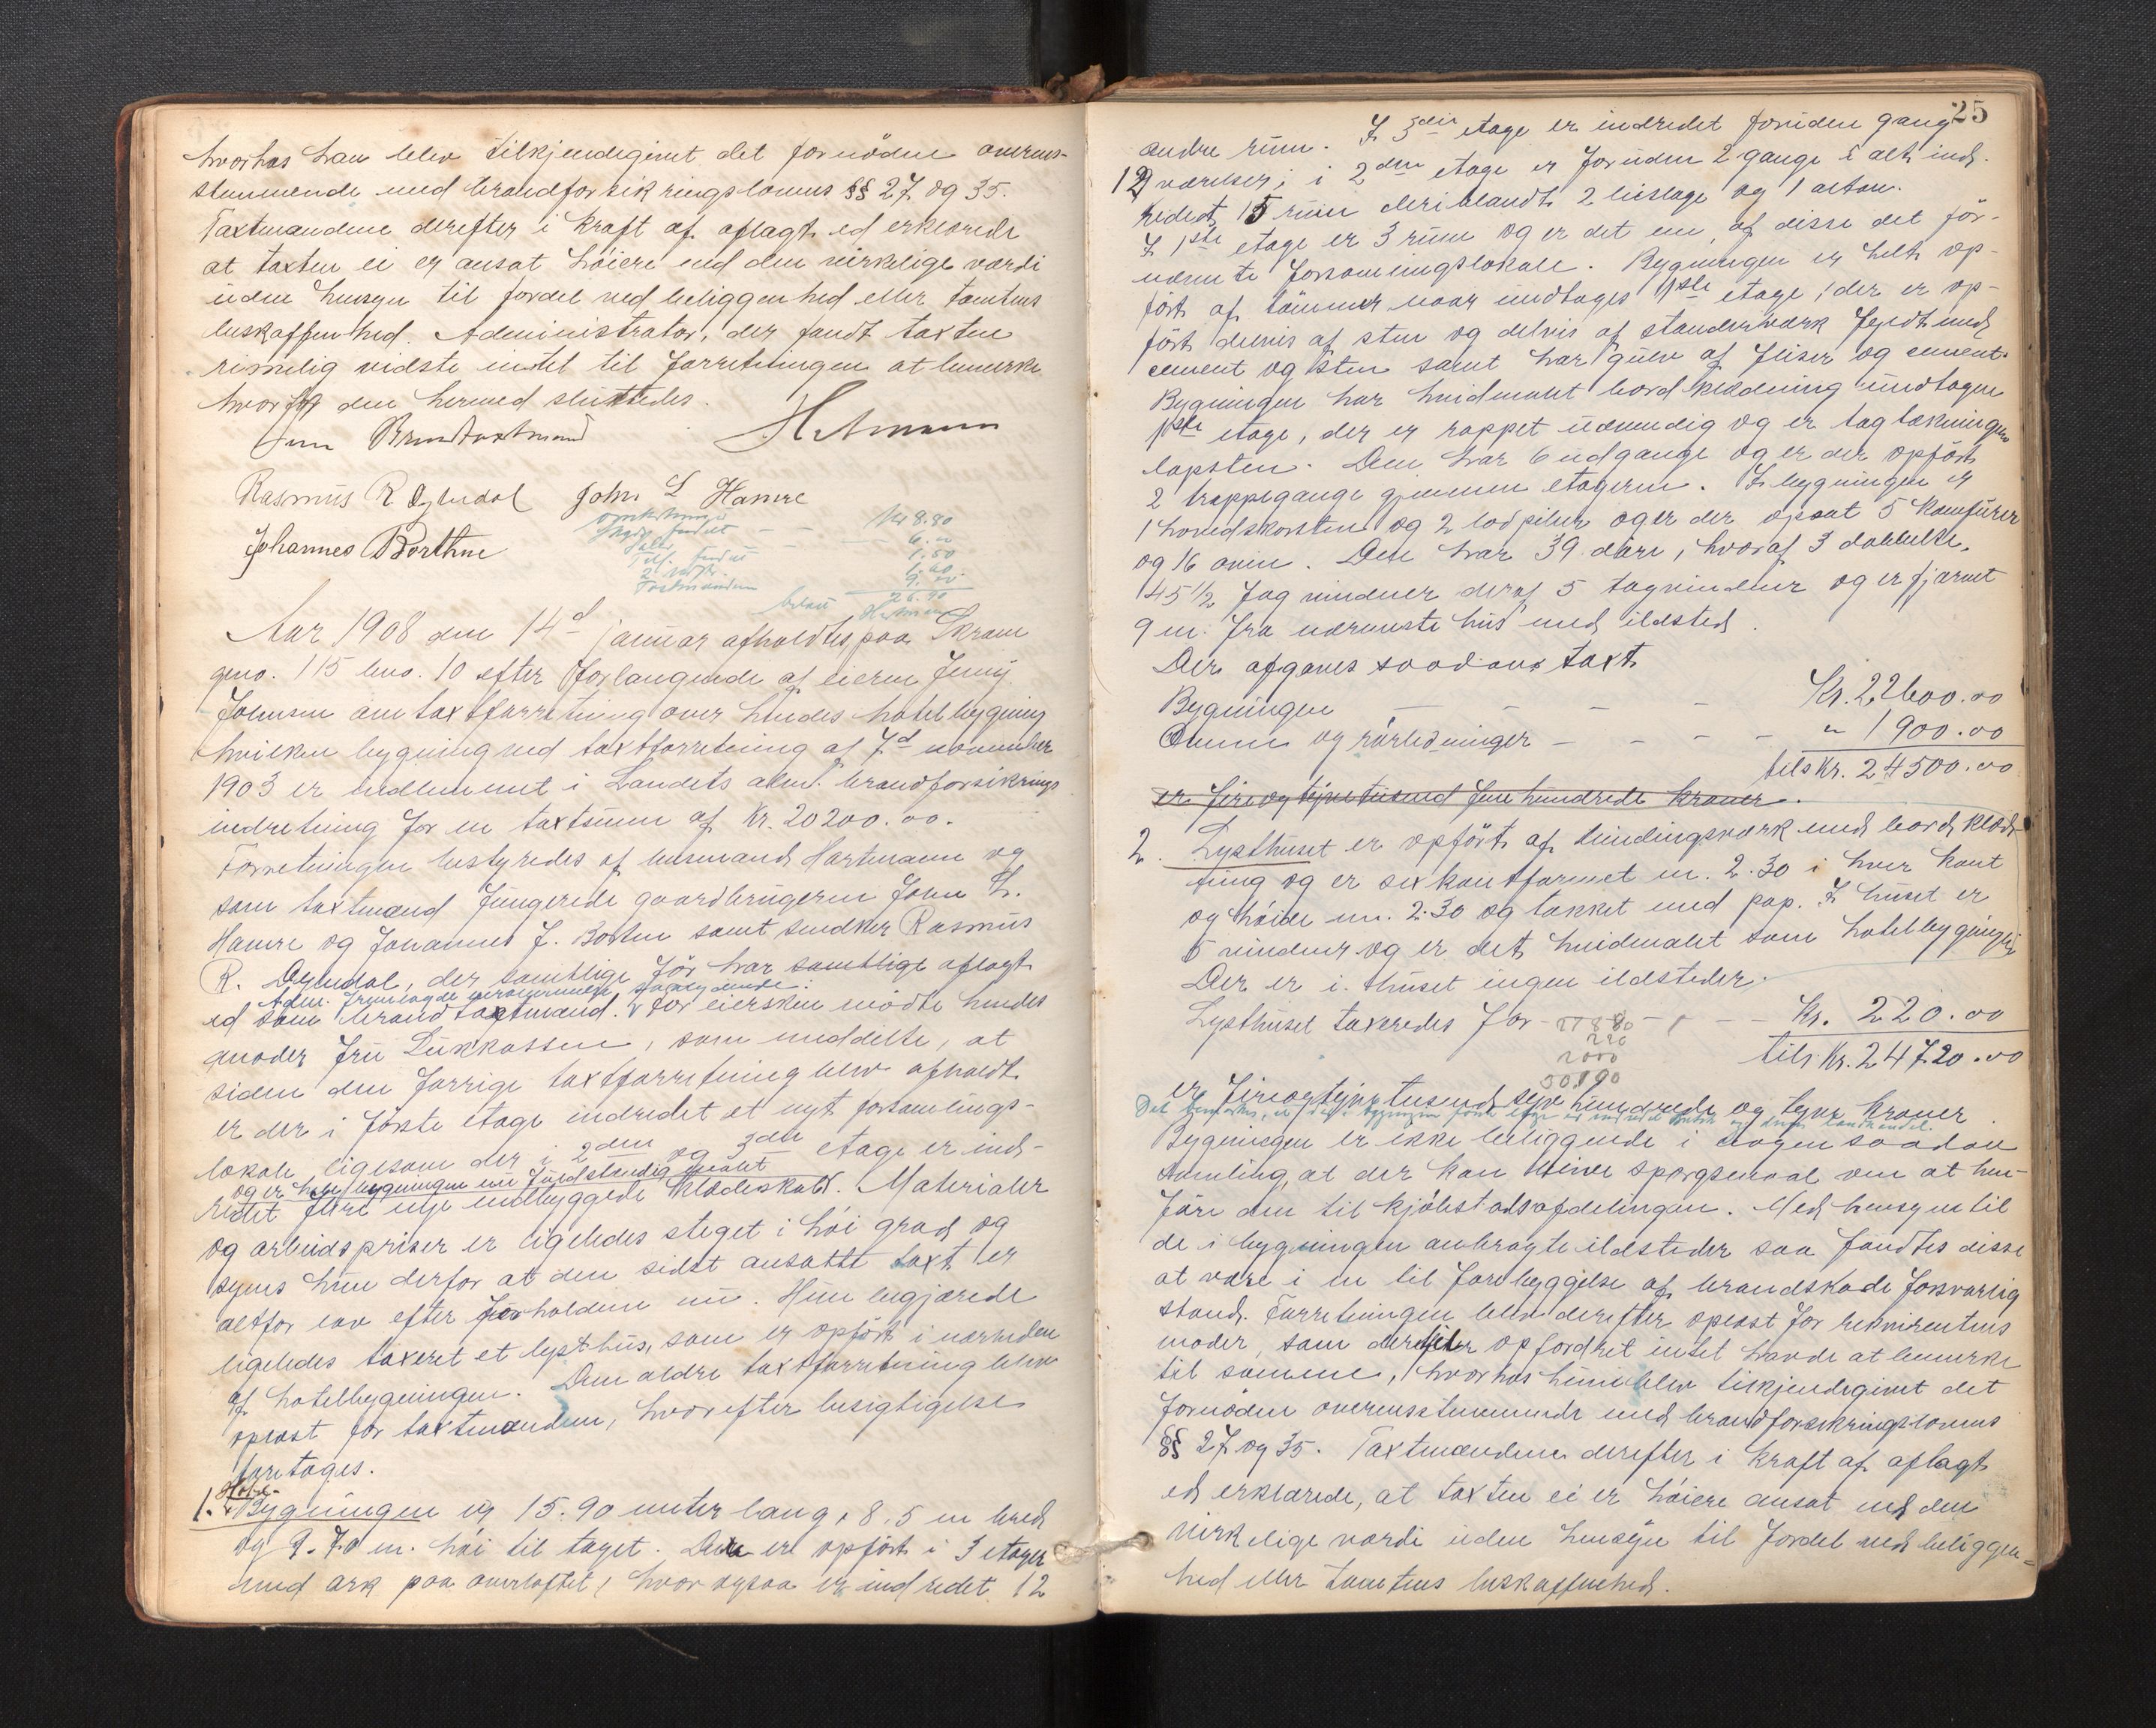 hvorhos han blev tilkjendegivet det fornödne overens-
stemmende med brandforsikringslovens §§ 27 og 35.
Taxtmændene derefter i kraft af aflagt ed erklærede
at taxten ei er ansat höiere end den virkelige værdi
uden hensyn til fordel ved beliggenhed eller tomtens
beskaffenhed. Administrator, der fandt taxten
rimelig vidste intet til forretningen at bemerke
hvorfor den hermed sluttedes.
Som Brandtaxtmænd
Hartmann
Rasmus R Øglendal John L Hamre
Johannes Borthne
Kr 8.80
6.00
1.50
1.60
9.00
26.90
Aar 1908 den 14d januar afholdtes paa Skram
gno. 115 bno. 10 efter forlangende af eieren Jenny
Johnsen om taxtforretning over hendes hotelbygning
hvilken bygning ved taxtforretning af 7d november
1903 er indlemmet i Landets alm. brandforsikrings
indretning for en taxtsum af Kr. 20200.00.
Forretningen bestyredes af lensmand Hartmann og
som taxtmænd fungerede gaardbrugerne John L.
Hamre og Johannes J. Borten samt snedker Rasmus
R. Øglendal, der samtlige för har samtlige aflagt
Adm. fremlagde opnævnelse saalydende:
ed som brandtaxtmænd. For eiersken mödte hendes
moder fru Lukkassen, som meddelte, at
siden den forrige taxtforretning blev afholdt
er der i förste etage indredet et nyt forsamlings-
lokale ligesom der i 2den og 3die etage er ind-
og er hele bygningen nu fuldstændig malet
redet flere nye indbyggede klædeskabe. Materialer
og arbeidspriser er ligeledes steget i höi grad og
synes hun derfor at den sidst ansatte taxt er
altfor lav efter forholdene nu. Hun begjærede
ligeledes taxeret et lysthus, som er opfört i nærheden
af hotelbygningen. Den ældre taxtforretning blev
oplæst for taxtmændene, hvorefter besigtigelse
foretages.
Hotel-
1. Bygningen er 15.90 meter lang, 8.5 m bred
og 9.70 m. höi til taget. Den er opfört i 3 etager
med ark paa overloftet, hvor ogsaa er indredet 12
25
andre rum. I 3die etage er indredet foruden gang
12 værelser; i 2den etage er foruden 2 gange i alt ind-
redet 15 rum deriblandt 2 bislage og 1 altan.
I 1ste etage er 3 rum og er det ene af disse det för-
nævnte forsamlingslokale. Bygningen er helt op-
fört af tömmer naar undtages 1ste etage, der er op-
fört delvis af sten og delvis af standerværk fyldt med
cement og sten samt har gulv af fliser og cement.
Bygningen har hvidmalet bordklædning undtagen
1ste etage, der er rappet udvendig og er tagtækningen
lapsten. Den har 6 udgange og er der opfört
2 trappegange gjennem etagerne. I bygningen er
1 hovedskorsten og 2 lodpiber og er der opsat 5 komfurer
og 16 ovne. Den har 39 döre, hvoraf 3 dobbelte,
45 1/2 fag vinduer deraf 5 tagvinduer og er fjærnet
9 m. fra nærmeste hus med ildsted.
Der afgaves saadan taxt
Bygningen — — — — Kr. 22600.00
Ovne og rörledninger — — — — " 1900.00
tils Kr. 24500.00
er fireogtyvetusend femhundrede kroner.
2. Lysthuset er opfört af bindingsværk med bordklæd-
ning og er sexkantformet m. 2.30 i hver kant
og höide m. 2.30 og tækket med pap. I huset er
5 vinduer og er det hvidmalet som hotelbygningen
Der er i huset ingen ildsteder.
Lysthuset taxeredes for — — Kr. 220.00
220
2000
50190
tils. Kr. 24720.00
er fireogtyvetusend syv hundrede og tyve kroner.
Bygningen er ikke beliggende i nogen saadan
samling, at der kan blive spørgsmaal om at hen-
före den til kjöbstadsafdelingen. Med hensyn til
de i bygningen anbragte ildsteder saa fandtes disse
at være i en til forebyggelse af brandskade forsvarlig
stand. Forretningen blev derefter oplæst for rekvirentens
moder, som derefter opfordret intet havde at bemerke
til samme, hvorhos hun blev tilkjendegivet det
fornödne overensstemmende med brandforsikringslovens
§§ 27 og 35. Taxtmændene derefter i kraft af aflagt
ed erklærede, at taxten ei er höiere ansat end den
virkelige værdi uden hensyn til fordel ved beliggen-
hed eller tomtens beskaffenhed.